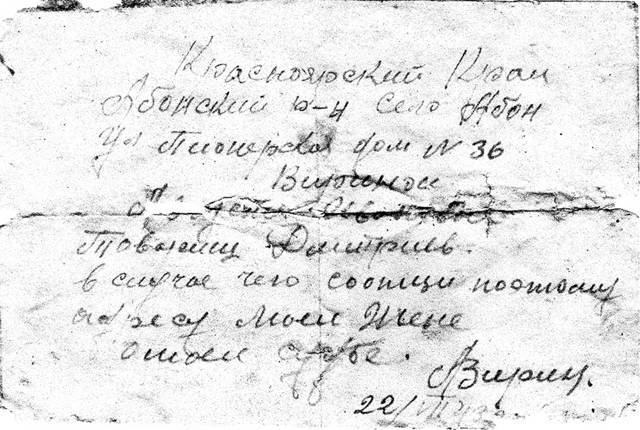 Красноярский Край
Абонский р-н Село Абон
ул Пионерская дом N 36
Вириной
Товарищ Дмитриев.
в случае чего сообщи поэтому
адресу моей Жене
о моей судьбе.
АВирин.
22/